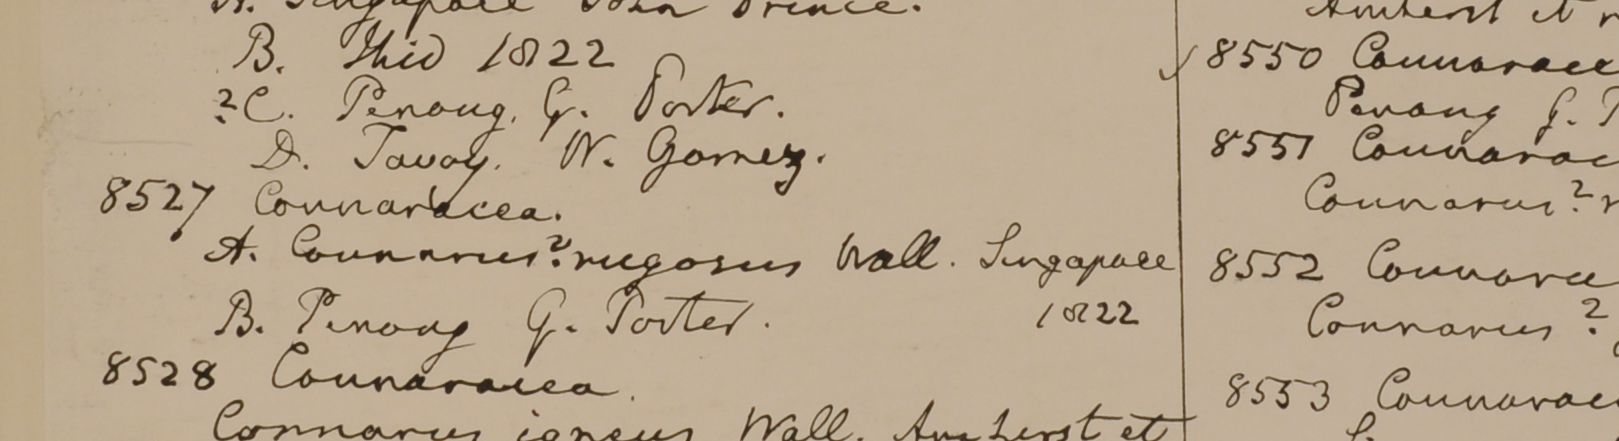 A. Singapore John Prince.
B. Ibid 1822
?C. Penang. G. Porter.
D. Tavoy. W. Gomez.
8527 Connaracea.
A. Connarus? rugosus Wall. Singapore
1822
B. Penang G. Porter.
8528 Connaracea.
Connarus igneus Wall. Amherst et
Amherst et
8550 Connaracea
Penang G. P
8551 Connarac
Connarus? r
8552 Connarac
Connarus ?
8553 Connarac